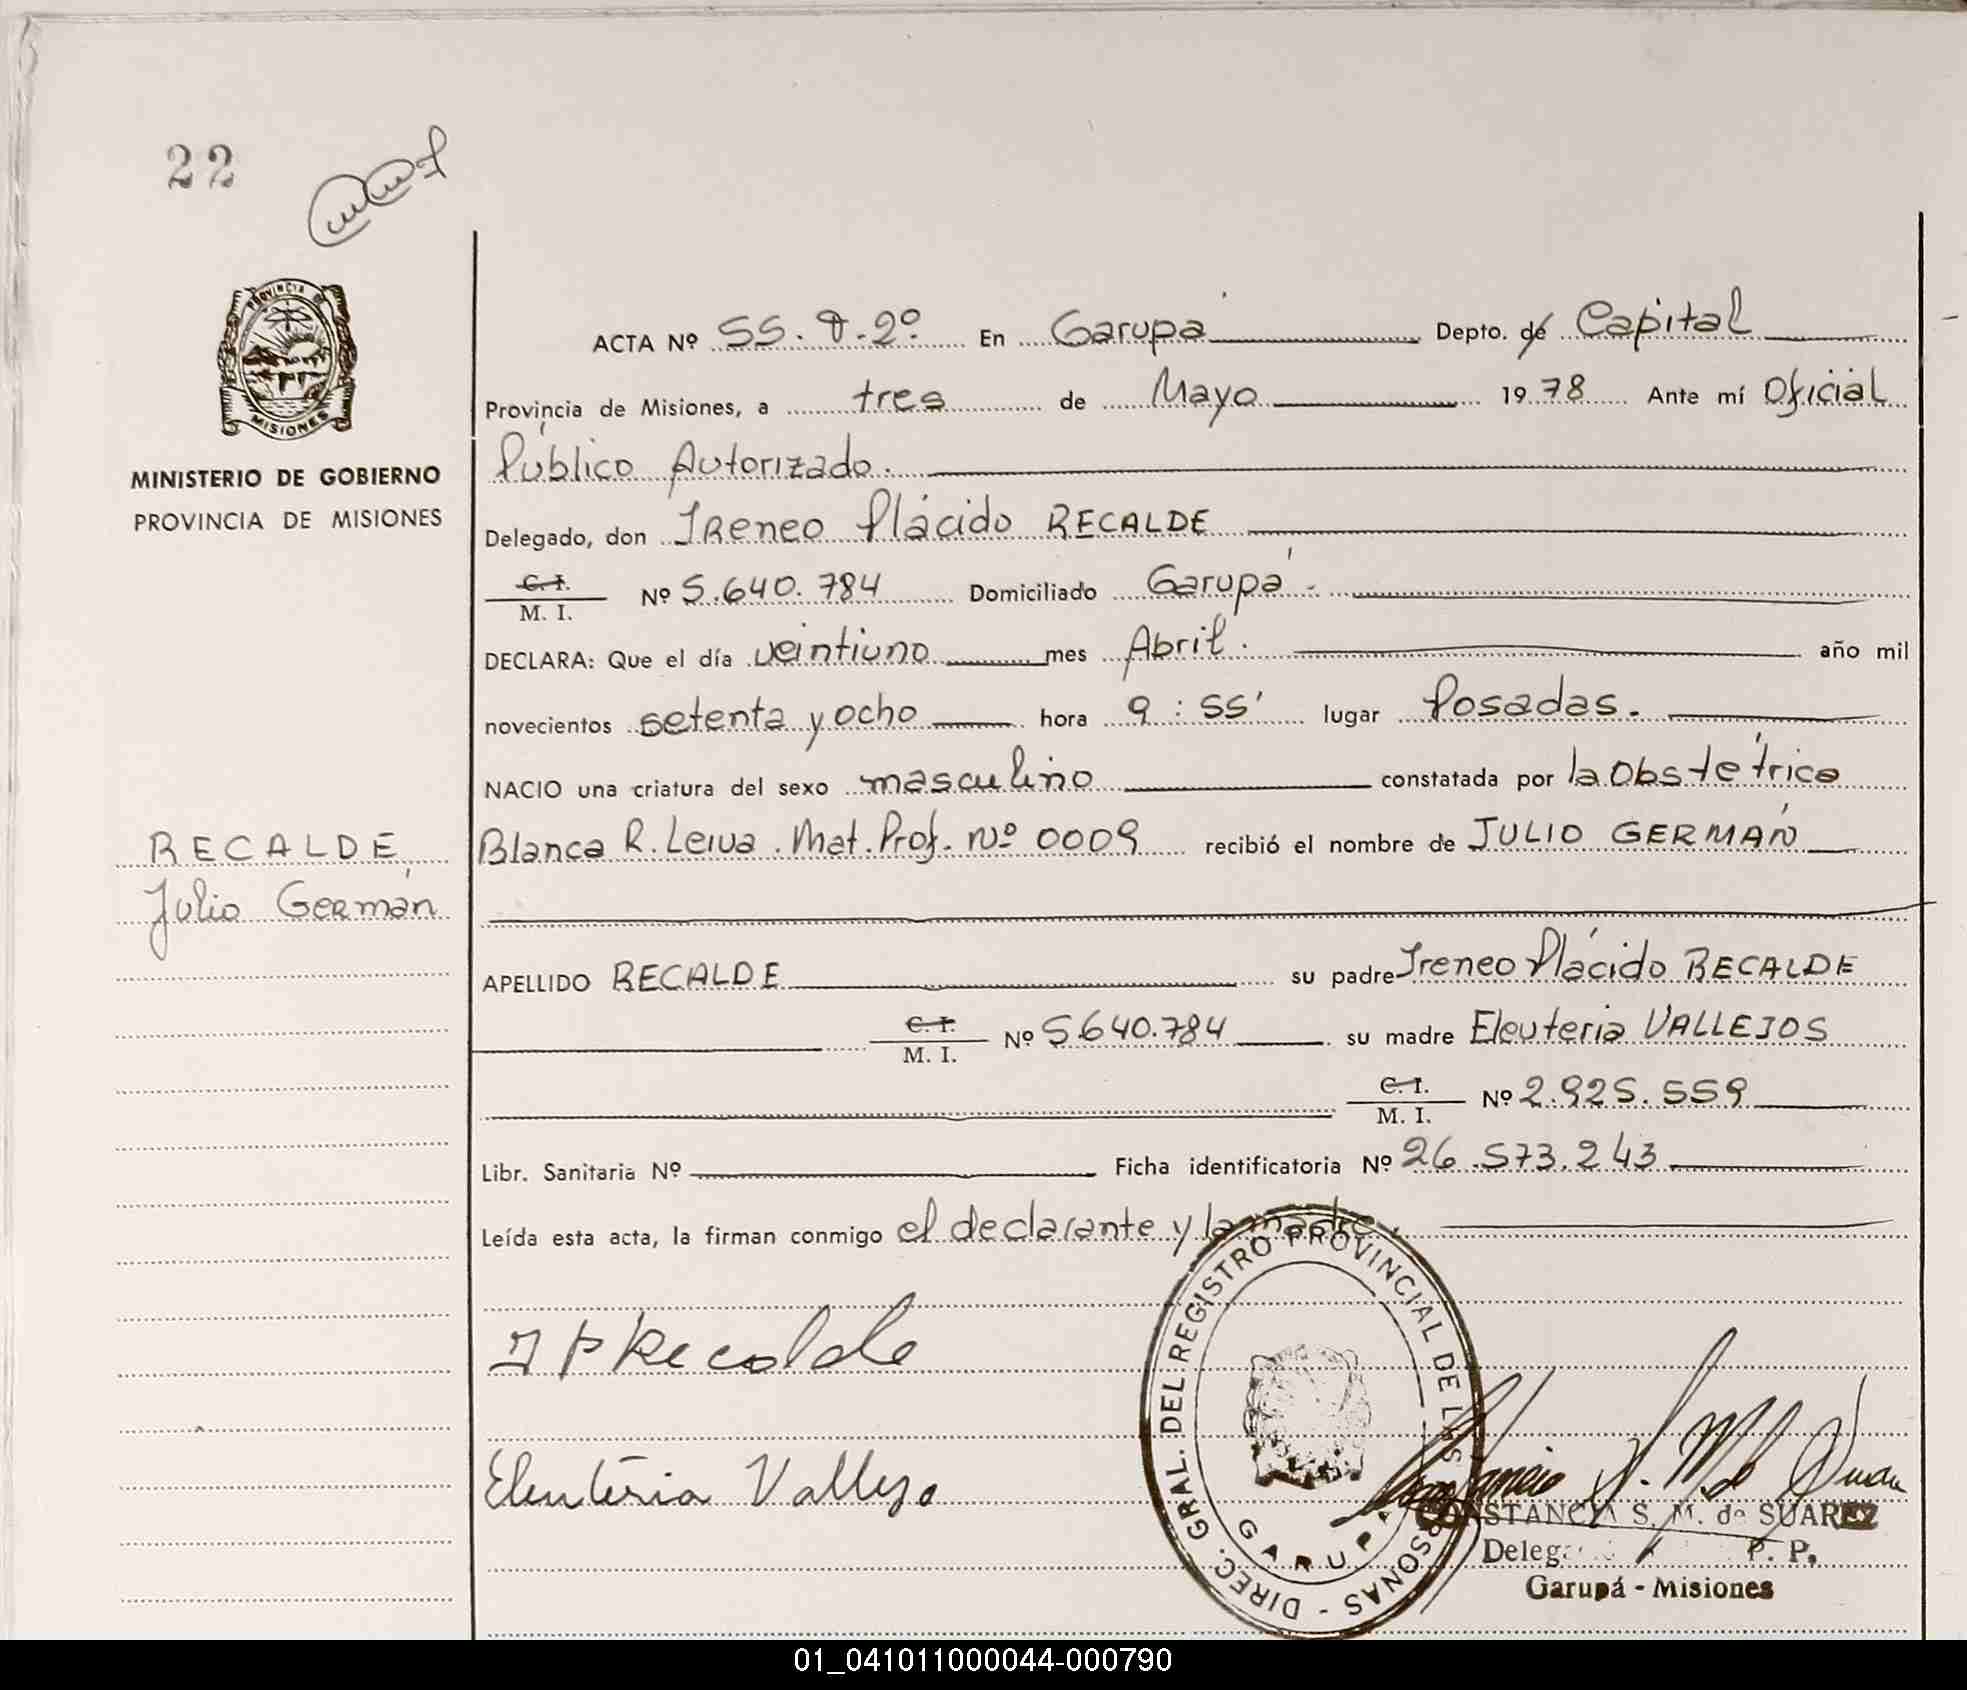 22
PROVINCIA DE
MISIONES
MINISTERIO DE GOBIERNO
PROVINCIA DE MISIONES
RECALDE
Julio Germán
ACTA Nº 55.T.2º En Garupá Depto. de Capital
Provincia de Misiones, a tres de Mayo 1978 Ante mí Oficial
Público Autorizado.
Delegado, don Ireneo Plácido RECALDE
C. I.
M. I. Nº 5.640.784 Domiciliado Garupá.
DECLARA: Que el día veintiuno mes Abril. año mil
novecientos setenta y ocho hora 9:55' lugar Posadas.
NACIO una criatura del sexo masculino constatada por la Obstétrica
Blanca R. Leiva. Mat. Prof. Nº 0009 recibió el nombre de JULIO GERMÁN
APELLIDO RECALDE su padre Ireneo Plácido RECALDE
C. I.
M. I. Nº 5.640.784 su madre Eleuteria VALLEJOS
C. I.
M. I. Nº 2.925.559
Libr. Sanitaria Nº Ficha identificatoria Nº 26.573.243
Leída esta acta, la firman conmigo el declarante y la madre.
I P Recalde
Eleuteria Vallejo
DIREC. GRAL. DEL REGISTRO PROVINCIAL DE LAS PERSONAS -
GARUPA
CONSTANCIA S. M. de SUAREZ
P. P.
Garupá - Misiones
01_041011000044-000790